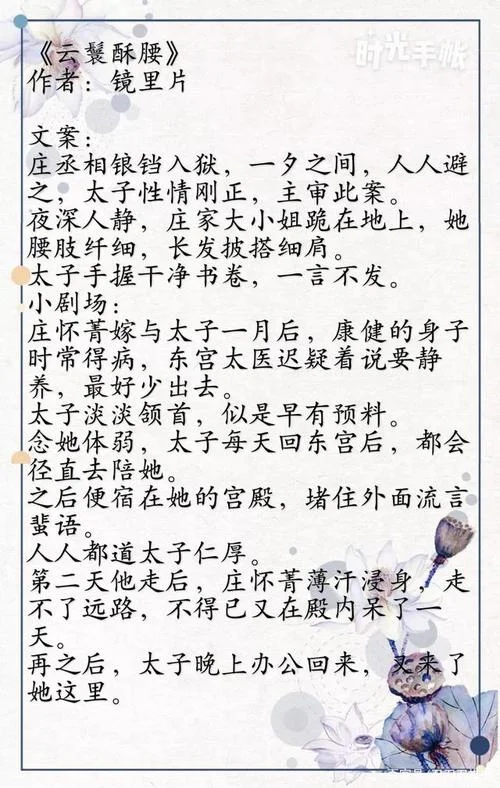 《云鬓酥腰》
时光手帐
作者：镜里片
文案：
庄丞相锒铛入狱，一夕之间，人人避
之，太子性情刚正，主审此案。
夜深人静，庄家大小姐跪在地上，她
腰肢纤细，长发披搭细肩。
太子手握干净书卷，一言不发。
小剧场：
庄怀菁嫁与太子一月后，康健的身子
时常得病，东宫太医迟疑着说要静
养，最好少出去。
太子淡淡颔首，似是早有预料。
念她体弱，太子每天回东宫后，都会
径直去陪她。
之后便宿在她的宫殿，堵住外面流言
蜚语。
人人都道太子仁厚。
第二天他走后，庄怀菁薄汗浸身，走
不了远路，不得已又在殿内呆了一
天。
再之后，太子晚上办公回来，又来了
她这里。